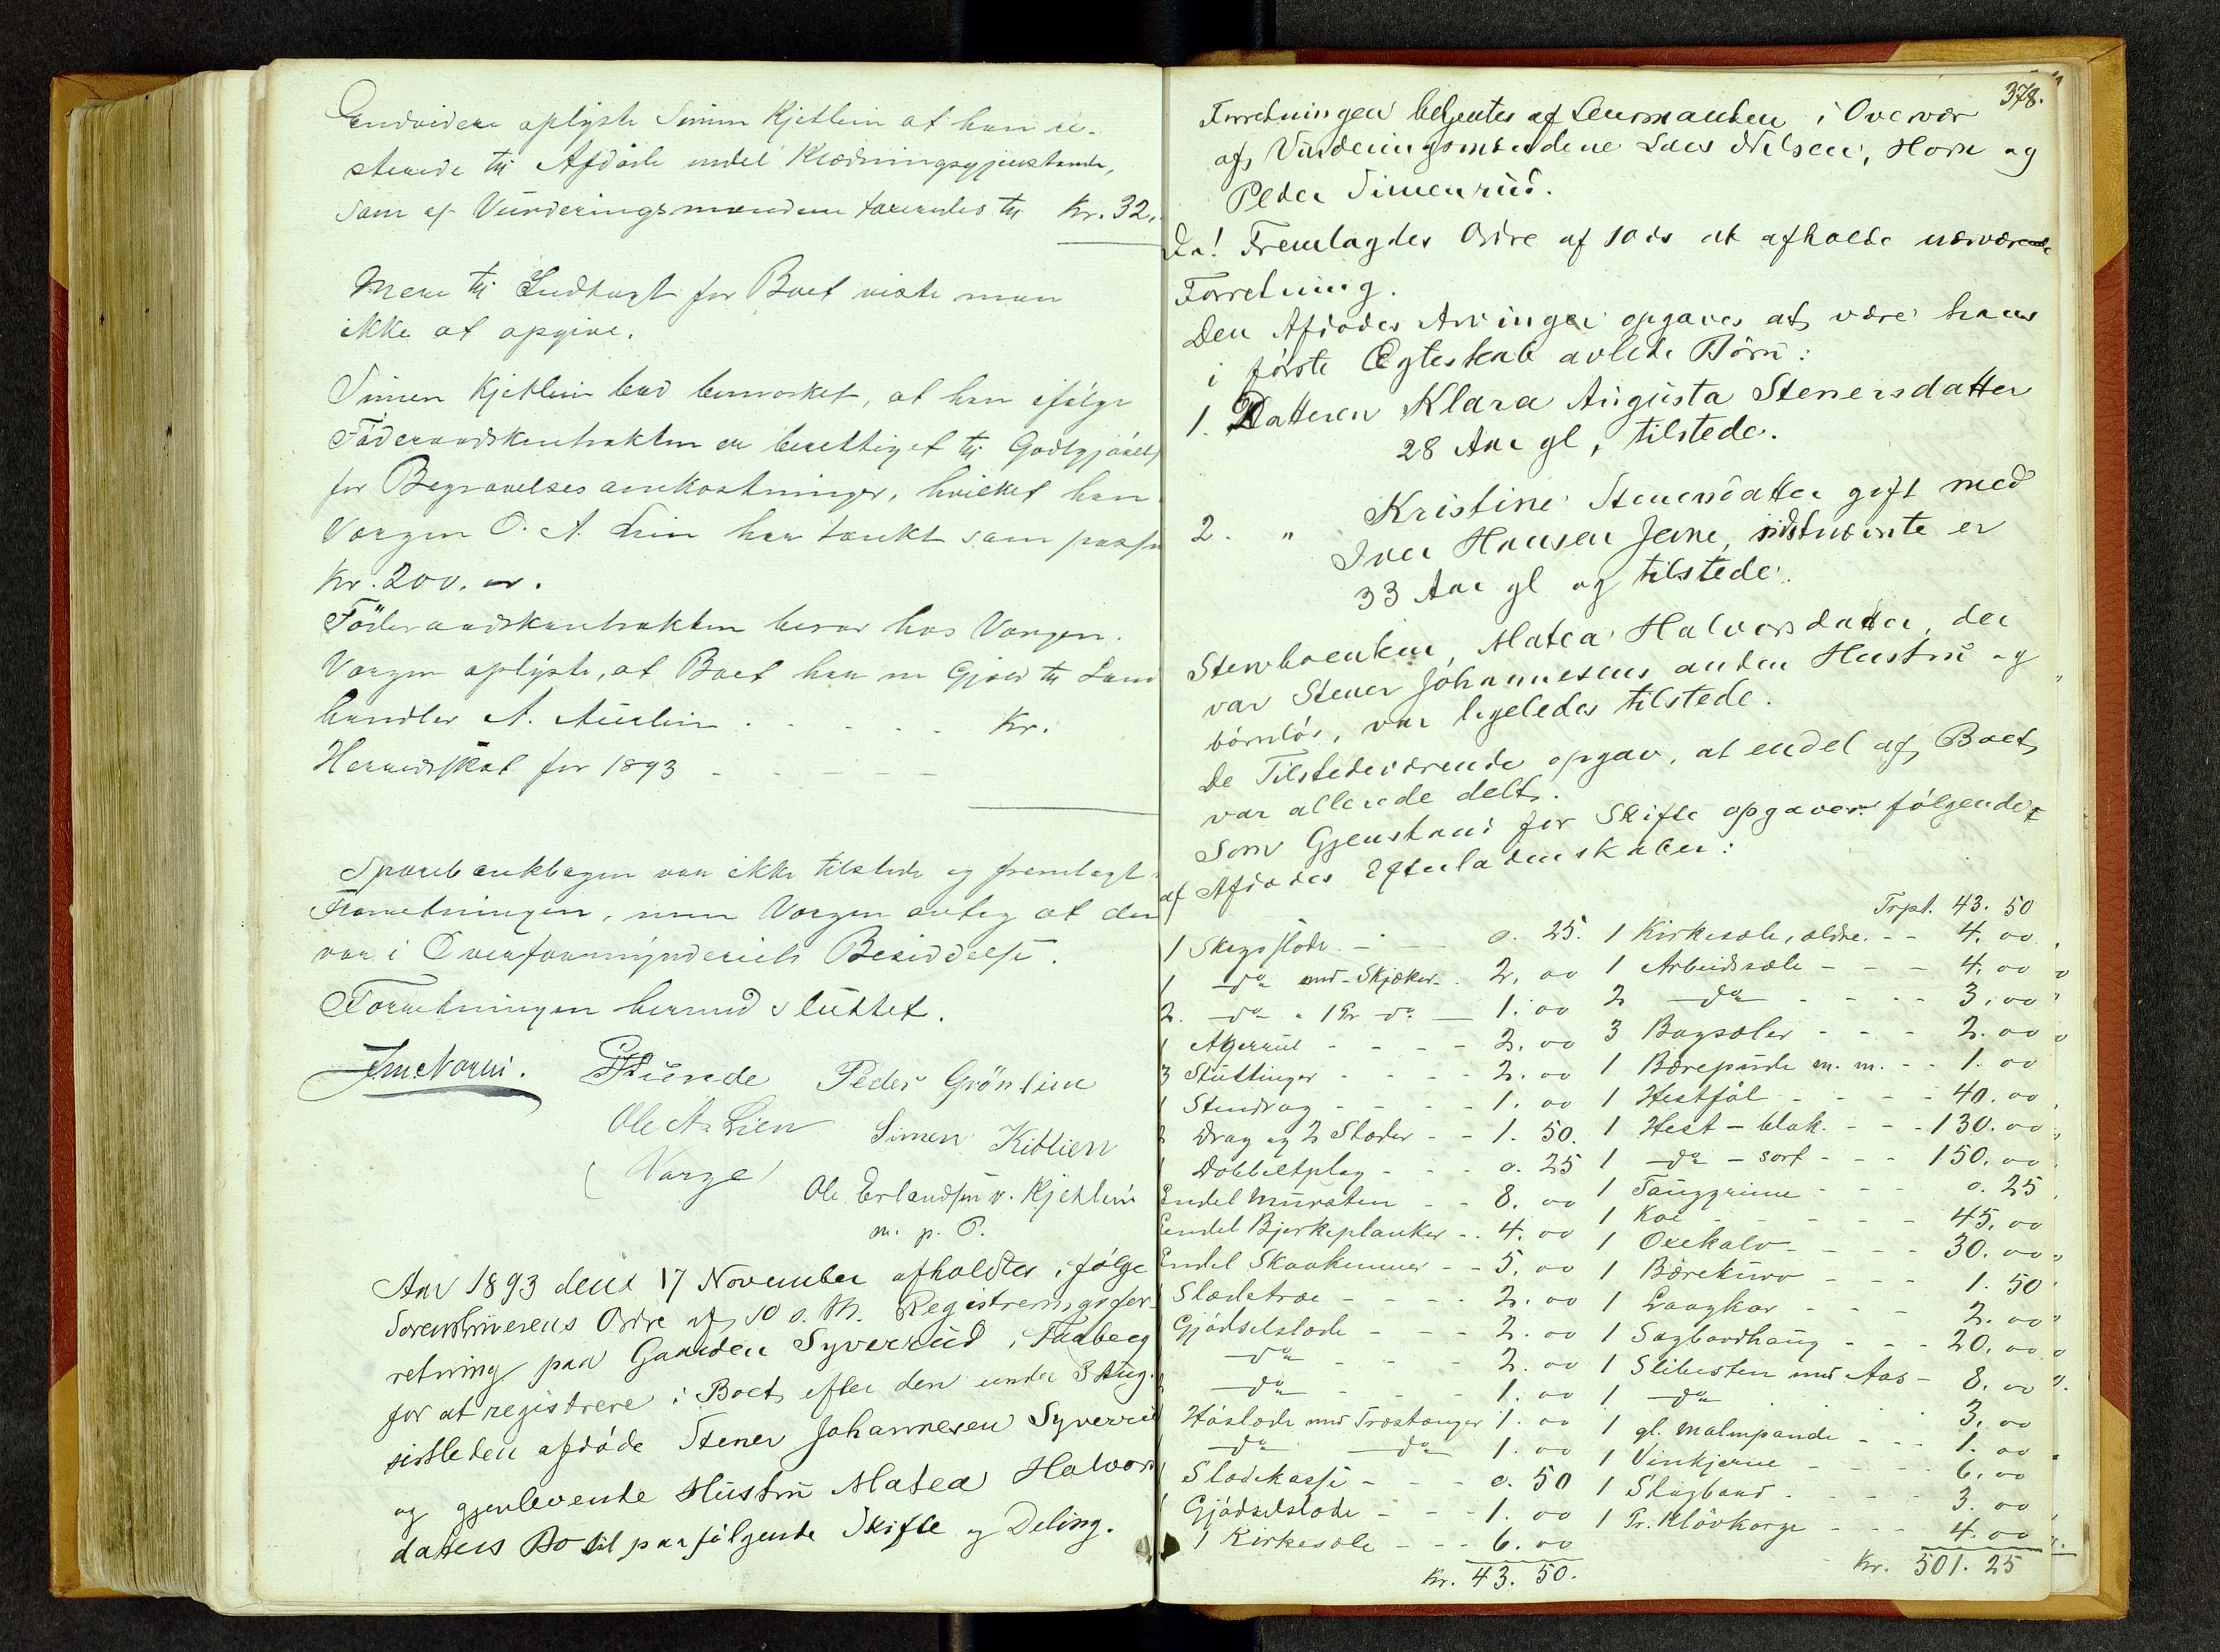 Endvidere oplyste Simen Kjetlien at han re-
sterede til Afdøde endel Klædningsgjenstande,
som af Vurderingsmændene taxeredes til Kr. 32.
Mere til Indtægt for Boet viste man
ikke at opgive.
Simen Kjetlien bad bemærket, at han ifølge
Föderaadskontrakten er berettiget til Godtgjörelse
for Begravelsesomkostninger, hvilket han
Værgen O. A. Lien har tænkt som passe
Kr. 200. oo.
Föderaadskontrakten beror hos Værgen.
Værgen oplyste, at Boet har en Gjæld til Land
handler A. Aulien . . . . . Kr.
Herredsskat for 1893 - - - - -
Sparebankbogen var ikke tilstede og fremlagt
Forretningen, men Værgen antog at den
var i Overformynderiets Besiddelse.
Forretningen hermed sluttet.
Peder Grönlien
Ole A. Lien Simen Kitlien
(Værge) Ole Erlandsen v. Kjetlien
m. p. P.
Aar 1893 den 17 November afholdtes i følge
Sorenskriverens Ordre af 10 d. M. Registreringsfor-
retning paa Gaarden Syverud i Faaberg
for at registrere i Boet efter den under 3 Aug.
sidstleden afdøde Stener Johannesen Syverud
og gjenlevende Hustru Matea Halvors
datters Bo til paafølgende Skifte og Deling.
378.
Forretningen betjentes af Lensmanden i Overvær
af Vurderingsmændene Lars Nilsen, Horn og
Peder Simenrud.
Da! Fremlagdes Ordre af 10 ds at afholde nærværende
Forretning.
Den Afdødes Arvinger opgaves at være hans
i første Ægteskab avlede Børn:
1. Datteren Klara Augusta Stenersdatter
28 Aar gl, tilstede.
2. " Kristine Stenersdatter gift med
Iver Hansen Jevne, sidstnævnte er
33 Aar gl og tilstede.
Stervboenken, Matea Halvorsdatter, der
var Stener Johannesens anden Hustru og
børnløs, var ligeledes tilstede.
De Tilstedeværende opgav, at endel af Boet
var allerede delt.
Som Gjenstand for Skifte opgaves følgende
af Afdødes Efterladenskaber:
Trpt. 43. 50
1 Skogsslæde - - - 0. 25. 1 Kirkesæle, ældre. - - 4. 00
1 do med Skjæker - 2. 00 1 Arbeidssæle - - - 4. 00
2. do " 1 Pr do - 1. 00 2 do - - - - 3. 00
1 Agerrul - - - - 2. 00 3 Bagsæler - - - 2. 00
3 Stuttinger - - - - 2. 00 1 Bærepude m. m. - - 1. 00
1 Stendrag - - - - 1. 00 1 Hestføl - - - - 40. 00
Drag og 2 Stæder - - 1. 50. 1 Hest - blak. - - - 130. 00
1 Dobbeltplog - - - 0. 25 1 do - sort - - - 150. 00
Endel Mursten - - 8. 00 1 Tauggrime - - - 0. 25
Endel Bjerkeplanker - - 4. 00 1 Koe - - - - - 45. 00
Endel Skaakemner - - 5. 00 1 Oxekalv - - - - 30. 00
1 Slædetræ - - - - 2. 00 1 Bærekurv - - - 1. 50
Gjødselslæde - - - 2. 00 1 Laagkar - - - 2. 00
do - - - 2. 00 1 Sagbordhaug - - - 20. 00
do - - - 1. 00 1 Slibesten med Aas - 8. 00
Høslæde med Træstænger 1. 00 1 do 3. 00
do do 1. 00 1 gl. Malmpande - - - 1. 00
1 Slædekasse - - - 0. 50 1 Vinkjerne - - - - 6. 00
Gjødselslæde - - - 1. 00 1 Slagbord - - - - 3. 00
1 Kirkesæle - - - 6. 00 1 Pr. Kløvkorge - - - 4. 00
Kr. 43. 50. Kr. 501. 25